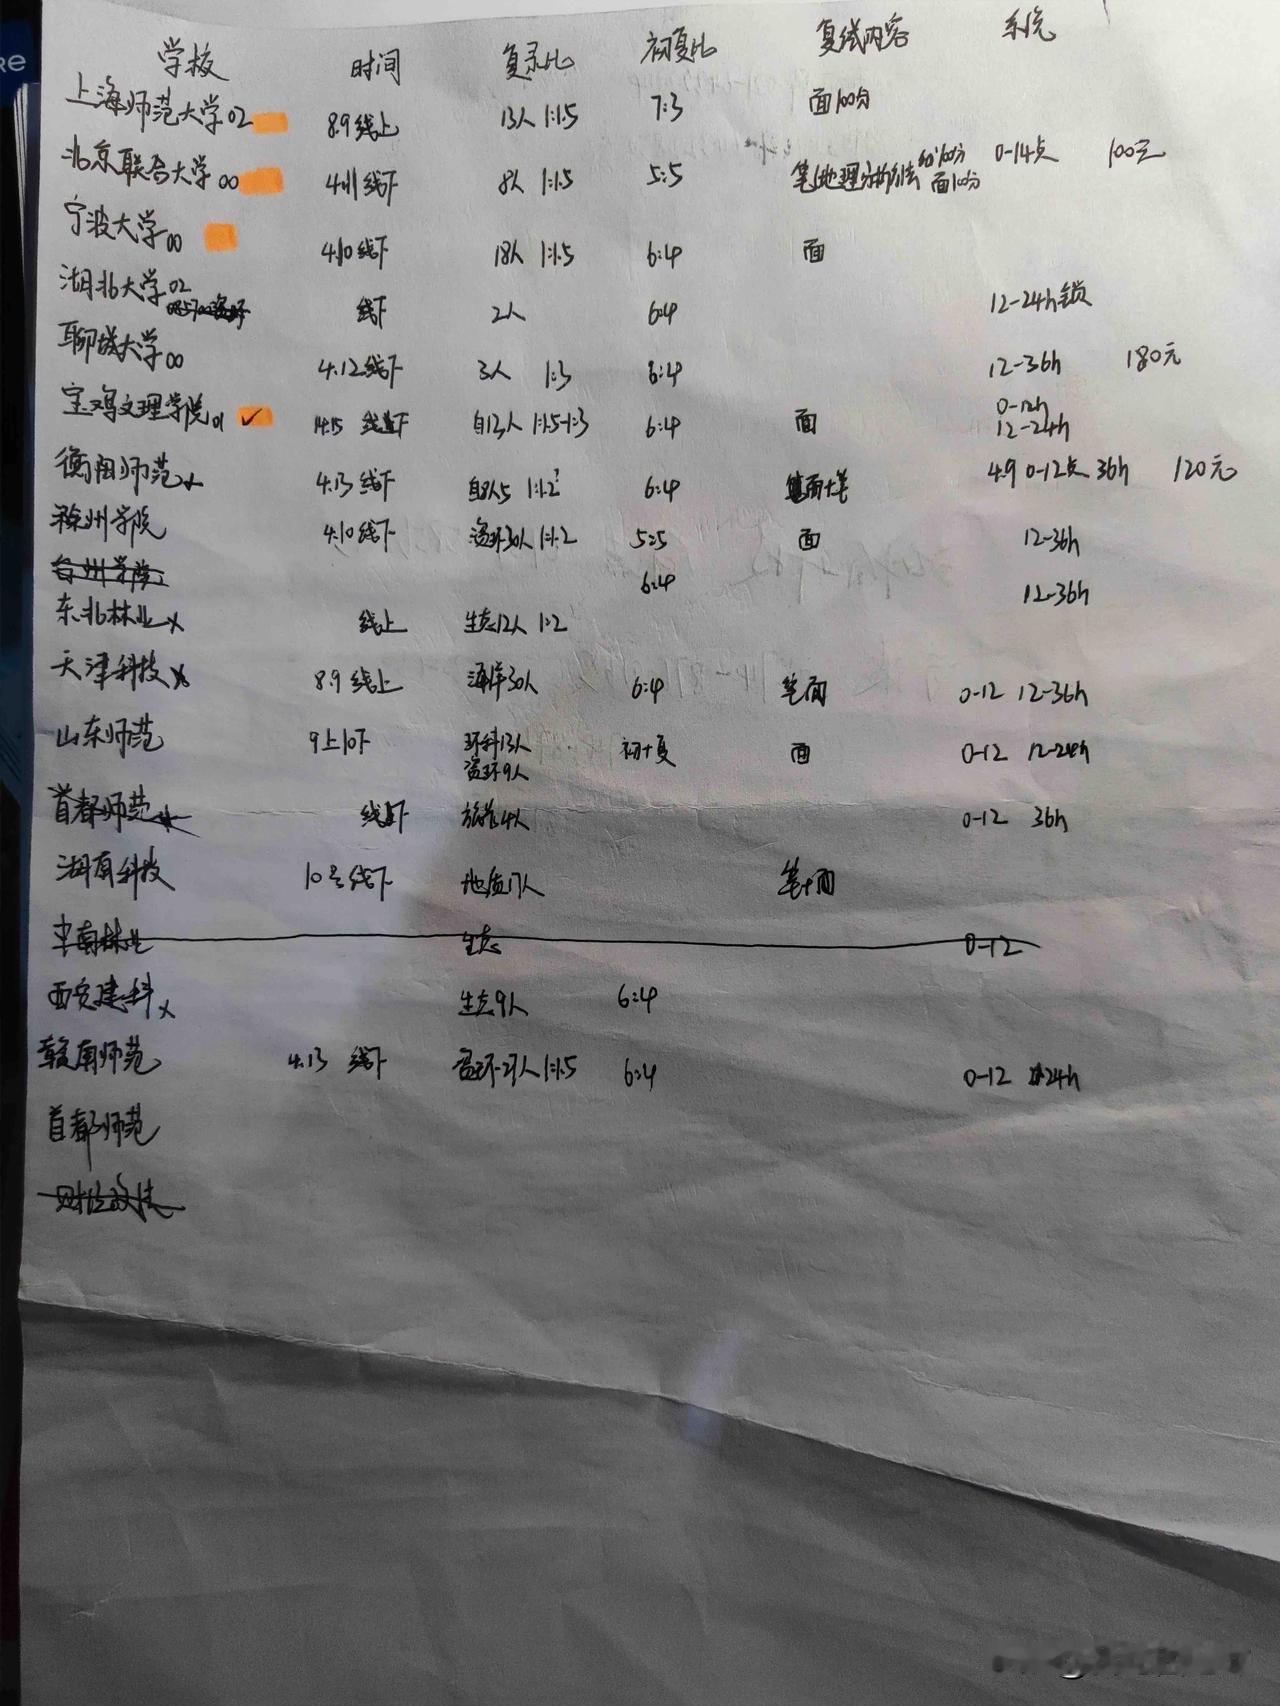 学校 时间 复录比 初复比 复试内容 系统
上海师范大学02 8.9线上 13人 1:1.5 7:3 面100分
北京联合大学00 4.11线下 8人 1:1.5 5:5 笔 地理 100分 面100分 0-14点 100元
宁波大学00 4.10线下 18人 1:1.5 6:4 面
湖北大学02 线下 2人 6:4 12-24h锁
聊城大学00 4.12线下 3人 1:3 6:4 12-36h 180元
宝鸡文理学院01 ✓ 14.15 线下 自13人 1:1.5-1:3 6:4 面 0-12h
12-24h
衡阳师范x 4.13线下 1:1.2? 6:4 面+笔 4.9 0-12点 36h 120元
滁州学院 4.10线下 资环30人 1:1.2 5:5 面 12-36h
台州学院 6:4 12-36h
东北林业x 线上 生态12人 1:2
天津科技x 8.9线上 海洋30人 6:4 笔面 0-12 12-36h
山东师范 9上10下 环科13人 初+复 面 0-12 12-24h
资环9人
首都师范 线下 旅游4人 0-12 36h
湖南科技 10号线下 地质17人 笔+面
中南林业 生态 0-12
西安建科x 生态9人 6:4
赣南师范 4.13 线下 资环27人 1:1.5 6:4 0-12 24h
首都师范